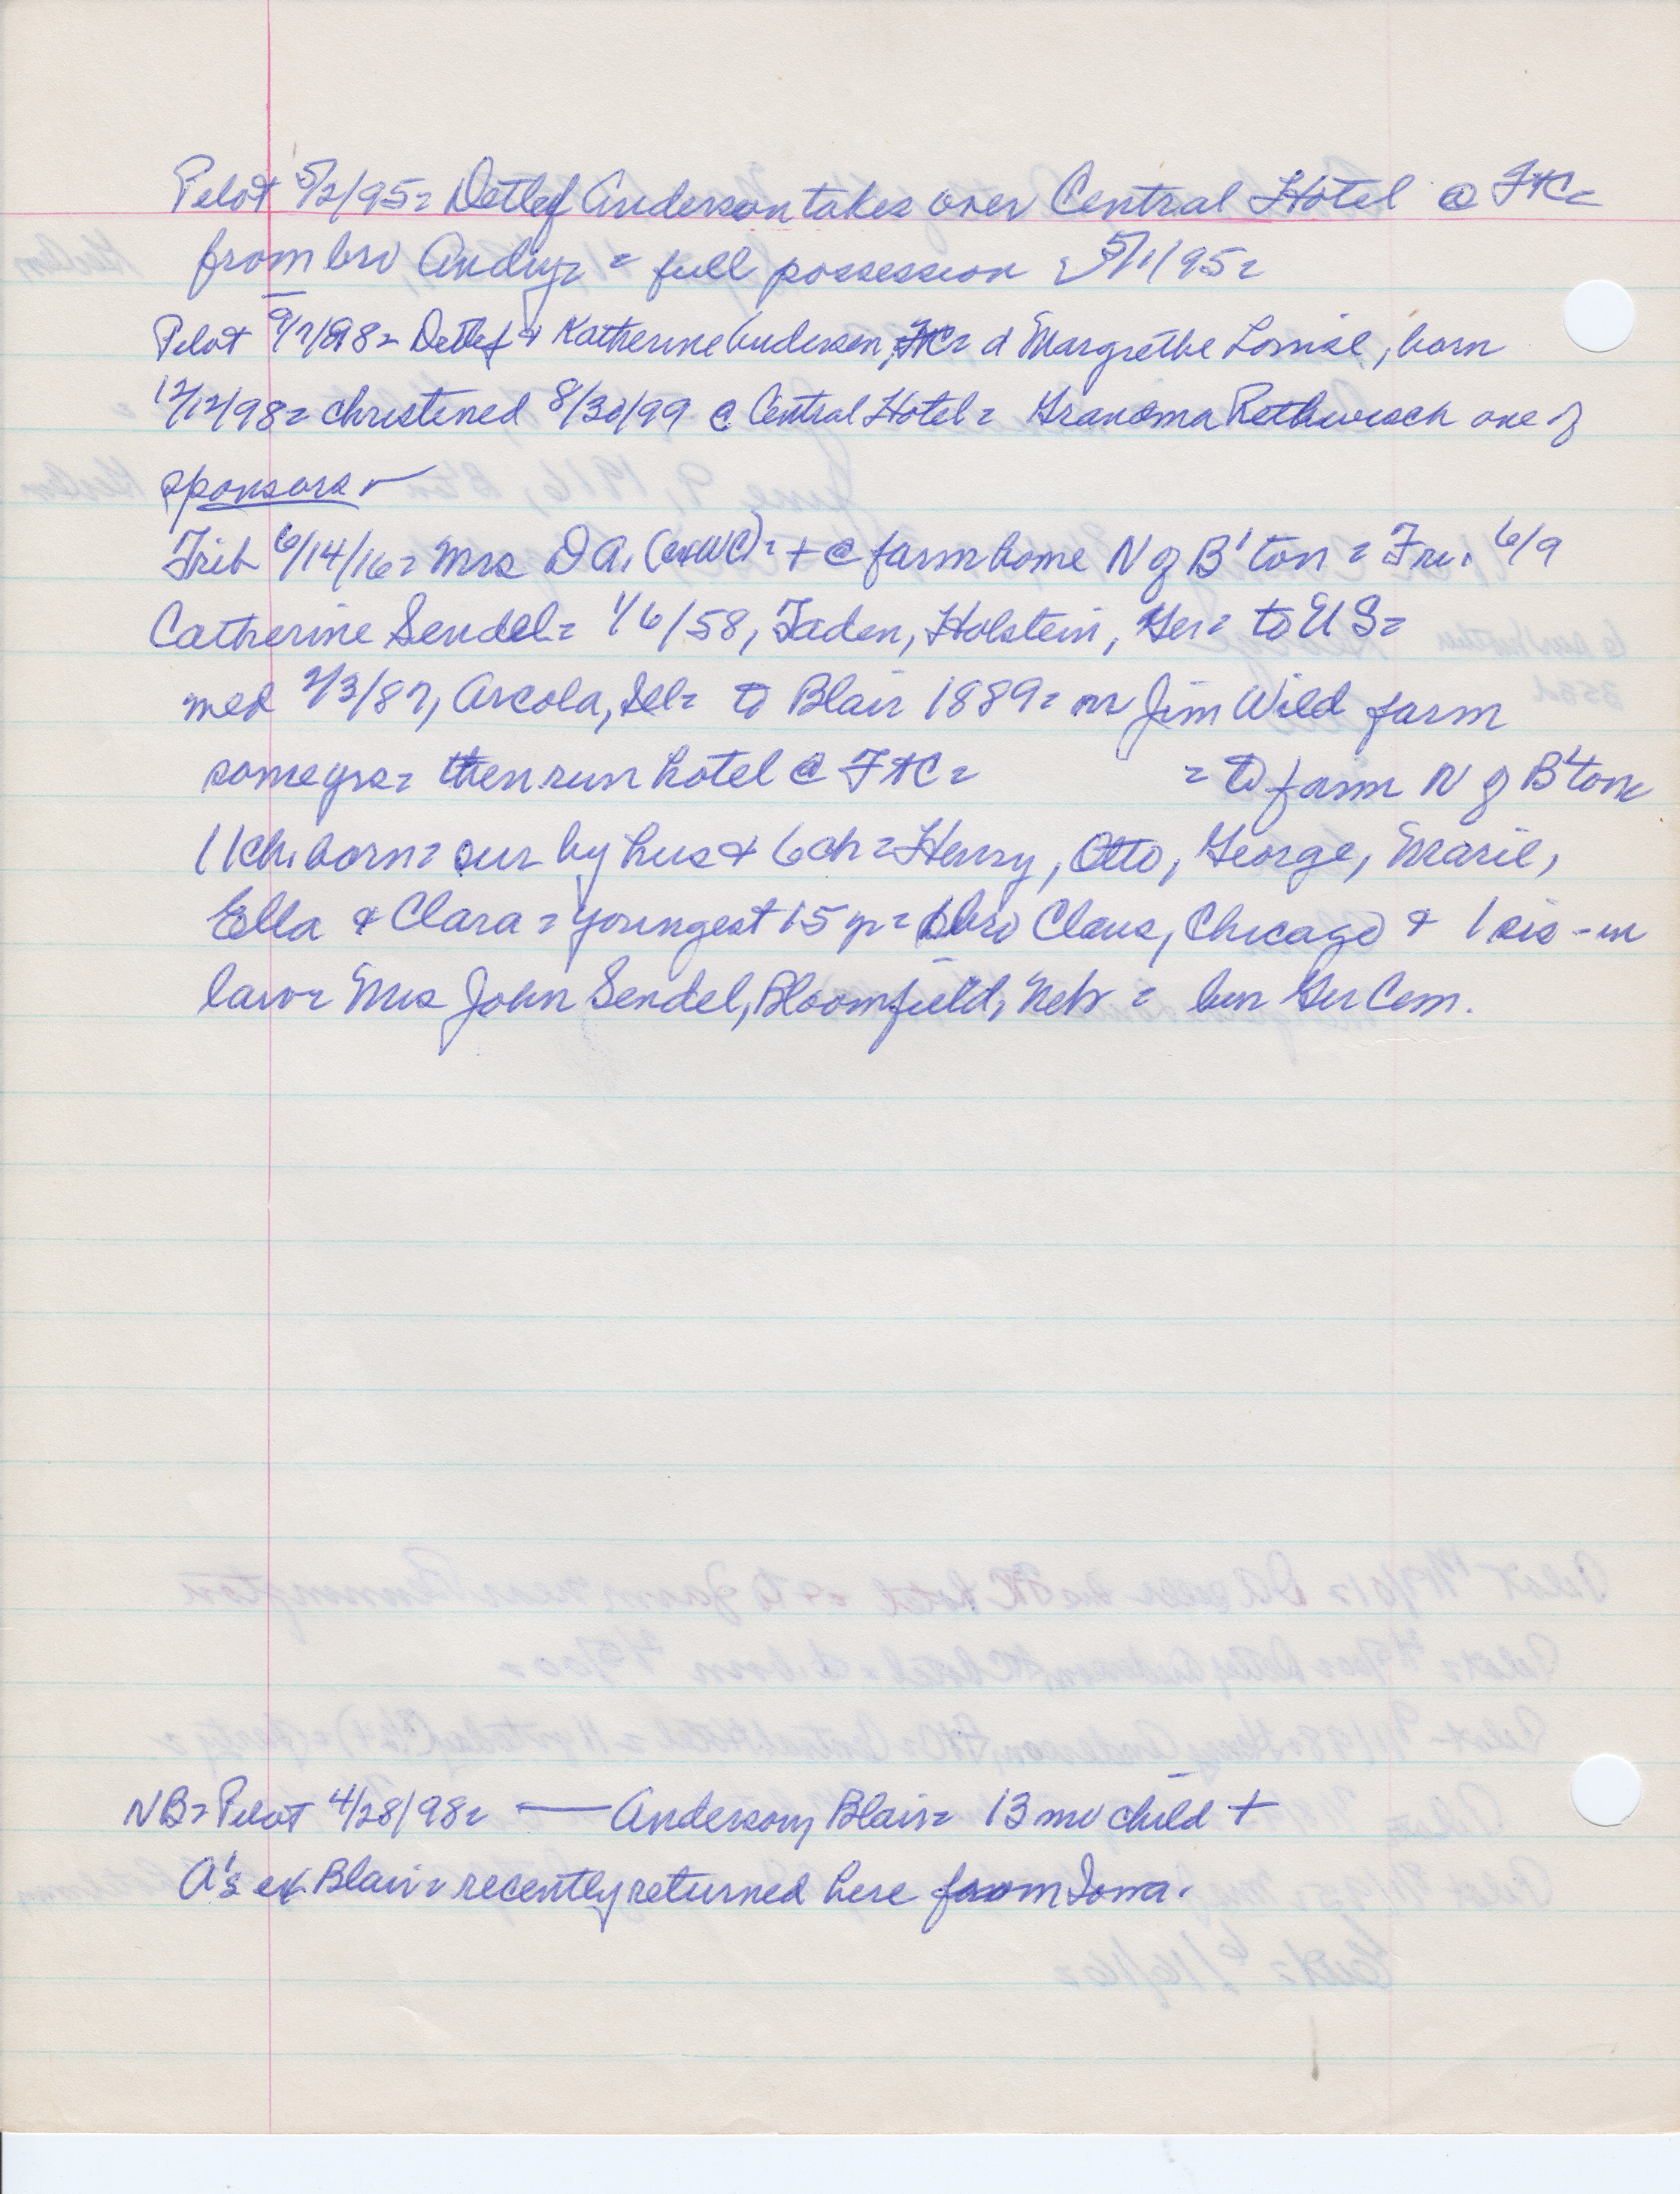 Pilot 5/2/95= Detlef Anderson takes over Central Hotel @ FtC=
from bro Andy= = full possession 5/1/95=
Pilot 9/7/98= Detlef & Katherine Andersen, FtC= d Margrethe Louise, born
12/12/98= christened 8/30/99 @ Central Hotel= Grandma Rethwisch one of
sponsors
Trib 6/14/16= Mrs D A. (exWC)= + @ farm home N of B'ton = Fri. 6/9
Catherine Sendel= 1/6/58, Taden, Holstein, Ger= to US=
med 2/3/87, Arcola, Ill= to Blair 1889= on Jim Wild farm
some yrs= then run hotel @ FtC= = to farm N of B'ton
11 ch. born= sur by hus & 6 ch= Henry, Otto, George, Marie,
Ella & Clara = youngest 15 yr= 1 bro Claus, Chicago & 1 sis-in
law= Mrs John Sendel, Bloomfield, Neb = bur Ger Cem.
NB= Pilot 4/28/98= — Anderson, Blair= 13 mo child +
A's ex Blair= recently returned here from Iowa.